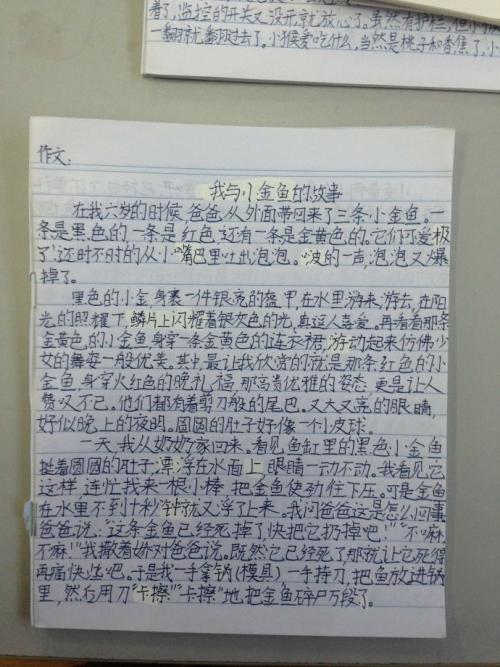 着了,监控的开关又没开,就放心了。虽然有护栏,但小猴
一翻就翻过去了。小猴爱吃什么,当然是桃子和香焦了,小
作文:
我与小金鱼的故事
在我六岁的时候,爸爸从外面带回来了三条小金鱼。一
条是黑色的一条是红色,还有一条是金黄色的。它们可爱极
了!还时不时的从小嘴巴里吐出泡泡。"波"的一声,泡泡又爆
掉了。
黑色的小金,身裹一件银亮的盔甲在水里游来游去,在阳
光的照耀下,鳞片上闪耀着银灰色的光,真逗人喜爱。再看看那条
金黄色,的小金鱼,身穿一条金黄色的连衣裙,游动起来仿佛少
女的舞姿一般优美。其中,最让我欣赏的就是那条红色的小
金鱼,身穿火红色的晚礼福,那高贵优雅的姿态,更是让人
赞叹不已。他们都有着剪刀般的尾巴。又大又亮的眼睛,
好似晚上的夜明。圆圆的肚子好像一个小皮球。
一天,我从奶奶家回来。看见鱼缸里的黑色小金鱼
挺着圆圆的肚子,漂浮在水面上,眼睛一动不动。我看见它
这样,连忙找来一根小棒,把金鱼使劲往下压。可是金鱼
在水里不到十秒钟就又浮了上来。我问爸爸这是怎么回事,
爸爸说:"这条金鱼已经死掉了快把它扔掉吧!""不嘛,
不嘛!"我撒着娇对爸爸说。既然它已经死了那就让它死得
再痛快些吧。于是我一手拿锅(模具)一手持刀,把鱼放进锅
里,然后用刀"卡擦""卡擦"地,把金鱼碎尸万段了。